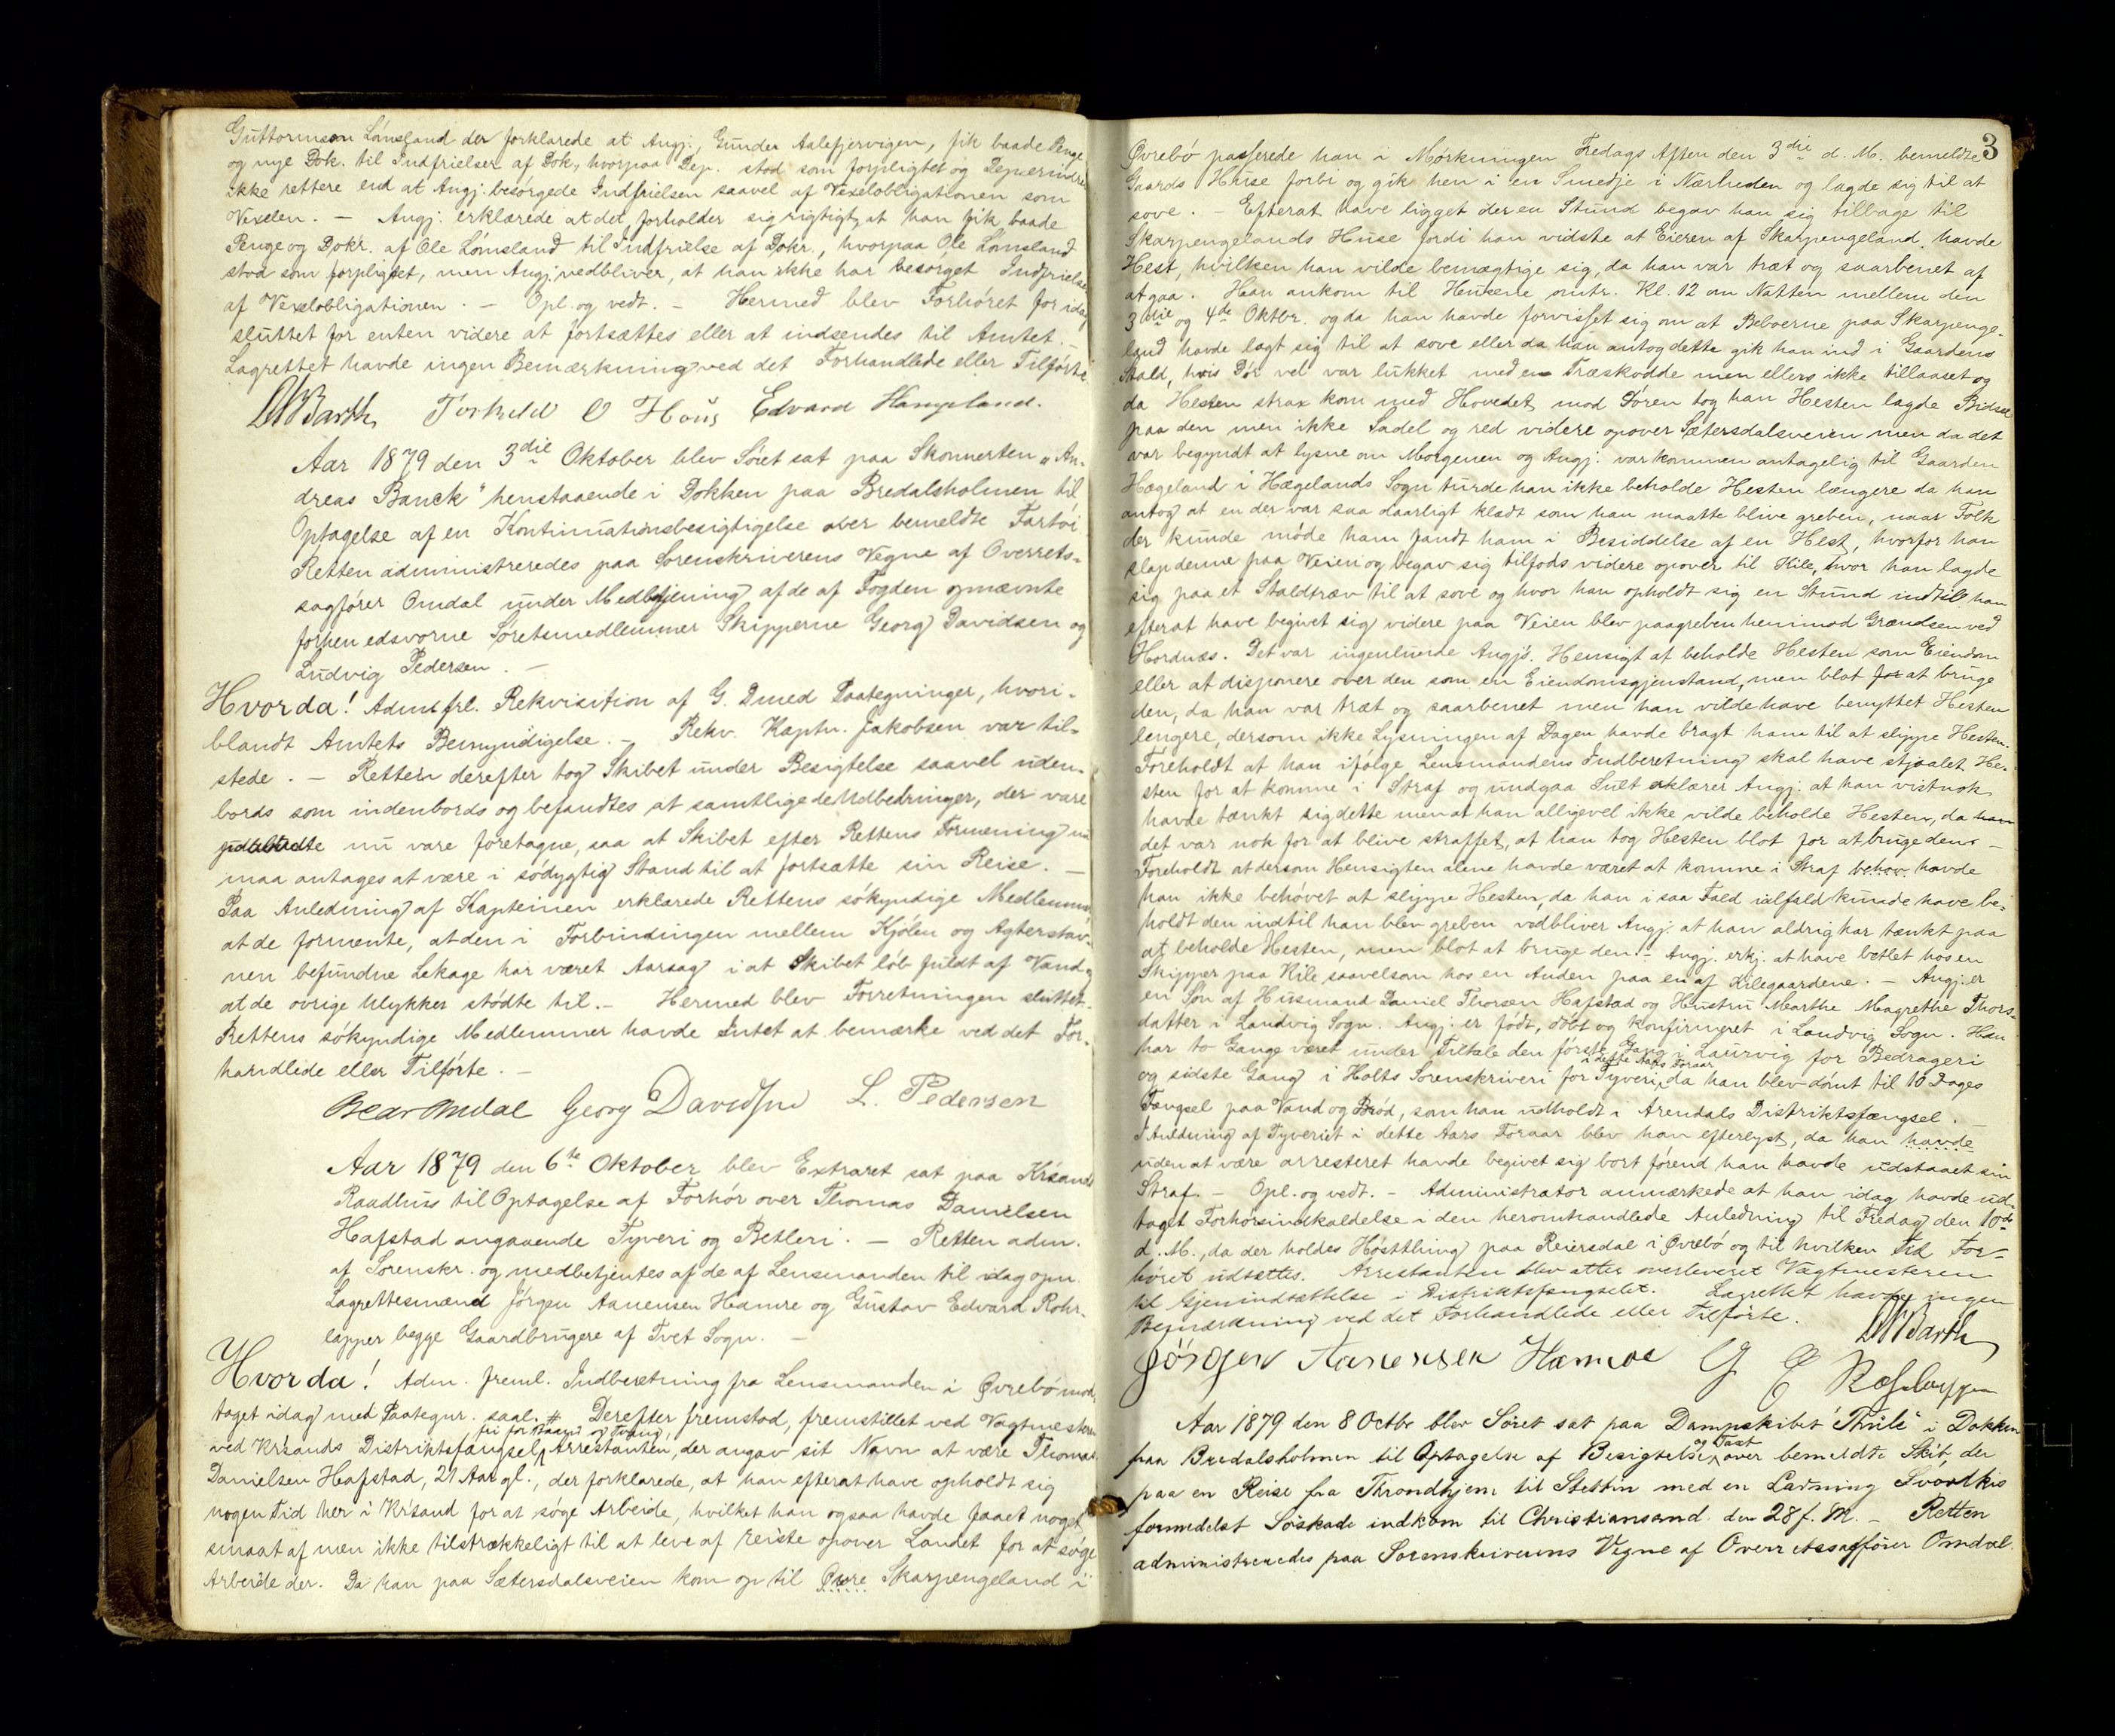 Guttormson Lønsland der forklarede at Angj., Gunder Aalefjervigen, fik baade Penge
og nye Dok. til Indfrielser af Dok, hvorpaa Dep. stod som forpligtet og Dep. erindrer
ikke rettere end at Angj. besørgede Indfrielsen saavel af Vexelobligationen som
Vexelen. – Angj. erklærede at det forholder sig rigtigt, at han fik baade
Penge og Dokr. af Ole Lønsland til Indfrielse af Dokr., hvorpaa Ole Lønsland
stod som forpligtet, men Angj. vedbliver, at han ikke har besørget Indfrielse
af Vexelobligationen. – Opl. og vedt. – Hermed blev Forhøret for idag
sluttet for enten videre at fortsættes eller at indsendes til Amtet. –
Lagrettet havde ingen Bemærkning ved det Forhandlede eller Tilførte
Barth Torkild O Houg Edvard Hangeland.
Aar 1879 den 3die Oktober blev Søret sat paa Skonnerten „An-
dreas Banck" henstaaende i Dokken paa Bredalsholmen til
Optagelse af en Kontinuationsbesigtigelse over bemeldte Fartøi
Retten administreredes paa Sorenskriverens Vegne af Overrets-
sagfører Omdal under Medbetjening af de af Fogden opnævnte
forhen edsvorne Søretsmedlemmer Skipperne Georg Davidsen og
Ludvig Pedersen. –
Hvorda! Adm. frl. Rekvisition af G. D. med Paategninger, hvori-
blandt Amtets Bemyndigelse. – Rekv. Kaptn. Jakobsen var til-
stede. – Retten derefter tog Skibet under Besigtelse saavel uden-
bords som indenbords og befandtes at samtlige de Udbedringer, der vare
nu vare foretagne, saa at Skibet efter Rettens Formening nu
maa antages at være i sødygtig Stand til at fortsætte sin Reise. –
Paa Anledning af Kapteinen erklærede Rettens søkyndige Medlemmer,
at de formente, at den i Forbindingen mellem Kjølen og Agterstav-
nen befundne Lekage har været Aarsag i at Skibet løb fuldt af Vand,
at de øvrige Ulykker stødte til. – Hermed blev Forretningen sluttet.
Rettens søkyndige Medlemmer havde Intet at bemærke ved det For-
handlede eller Tilførte. –
Omdal Georg Davidsen L. Pedersen
Aar 1879 den 6te Oktober blev Extraret sat paa Krsands
Raadhus til Optagelse af Forhør over Thomas Danielsen
Hafstad angaaende Tyveri og Betleri. – Retten adm.
af Sorenskr. og medbetjentes af de af Lensmanden til idag opn.
Lagrettesmænd Jørgen Aanensen Hamre og Gustav Edvard Rohr-
lapper begge Gaardbrugere af Tvet Sogn. –
Hvorda! Adm. freml. Indberetning fra Lensmanden i Øvrebø mod-
taget idag med Paategnr. saal. # Derefter fremstod, fremstillet ved Vagtmesteren
ved Krsands Distriktsfængsel, fri for Baand og Tvang, Arrestanten, der angav sit Navn at være Thomas
Danielsen Hafstad, 21 Aar gl., der forklarede, at han efterat have opholdt sig
nogen Tid her i Krsand for at søge Arbeide, hvilket han ogsaa havde faaet noget
smaat af men ikke tilstrækkeligt til at leve af reiste opover Landet for at søge
Arbeide der. Da han paa Sætersdalsveien kom op til Øvre Skarpengeland i
3
Øvrebø passerede han i Mørkningen Fredags Aften den 3die d. M. bemeldte
Gaards Huse forbi og gik hen i en Smedje i Nærheden og lagde sig til at
sove. – Efterat have ligget der en Stund begav han sig tilbage til
Skarpengelands Huse fordi han vidste at Eieren af Skarpengeland havde
Hest, hvilken han vilde bemægtige sig, da han var træt og saarbenet af
at gaa. Han ankom til Husene omtr. Kl. 12 om Natten mellem den
3die og 4de Oktbr. og da han havde forvisset sig om at Beboerne paa Skarpenge-
land havde lagt sig til at sove eller da han antog dette gik han ind i Gaardens
Stald, hvis Dør vel var lukket med en Træskodde men ellers ikke tillaaset og
da Hesten strax kom med Hovedet mod Døren tog han Hesten lagde Bidsel
paa den men ikke Sadel og red videre opover Sætersdalsveien men da det
var begyndt at lysne om Morgenen og Angj. var kommen antagelig til Gaarden
Hægeland i Hægelands Sogn turde han ikke beholde Hesten længere da han
antog at en der var saa daarligt klædt som han maatte blive greben, naar Folk
der kunde møde ham fandt ham i Besiddelse af en Hest, hvorfor han
slap denne paa Veien og begav sig tilfods videre opover til Kile, hvor han lagde
sig paa et Staldtræv til at sove og hvor han opholdt sig en Stund indtil han
efterat have begivet sig videre paa Veien blev paagreben henimod Grændsen ved
Hordnæs. Det var ingenlunde Angj's. Hensigt at beholde Hesten som Eiendom
eller at disponere over den som en Eiendomsgjenstand, men blot for at bruge
den, da han var træt og saarbenet men han vilde have benyttet Hesten
længere, dersom ikke Lysningen af Dagen havde bragt ham til at slippe Hesten.
Foreholdt at han ifølge Lensmandens Indberetning skal have stjaalet He-
sten for at komme i Straf og undgaa Sult erklærer Angj. at han vistnok
havde tænkt sig dette men at han alligevel ikke vilde beholde Hesten, da han
det var nok for at blive straffet, at han tog Hesten blot for at bruge den. –
Foreholdt at dersom Hensigten alene havde været at komme i Straf behov havde
han ikke behøvet at slippe Hesten, da han i saa Fald ialfald kunde have be-
holdt den indtil han blev greben vedbliver Angj. at han aldrig har tænkt paa
at beholde Hesten, men blot at bruge den. – Angj. erkj. at have betlet hos en
Skipper paa Kile saavelsom hos en Anden paa en af Kilegaardene. – Angj. er
en Søn af Husmand Daniel Thorsen Hafstad og Hustru Marthe Magrethe Thors-
datter i Landvig Sogn. Angj. er født, døbt og konfirmeret i Landvig Sogn. Han
har to Gange været under Tiltale den første Gang i Laurvig for Bedrageri
og sidste Gang i Holts Sorenskriveri for Tyveri i dette Aars Foraar, da han blev dømt til 10 Dages
Fængsel paa Vand og Brød, som han udholdt i Arendals Distriktsfængsel. –
I Anledning af Tyveriet i dette Aars Foraar blev han efterlyst, da han havde
uden at være arresteret havde begivet sig bort førend han havde udstaaet sin
Straf. – Opl. og vedt. – Administrator anmærkede at han idag havde ud-
taget Forhørsindkaldelse i den heromhandlede Anledning til Fredag den 10de
d. M., da der holdes Høstthing paa Reiersdal i Øvrebø og til hvilken Tid For-
høret udsættes. Arrestanten blev atter overleveret Vagtmesteren
til Gjenindsættelse i Distriktsfængselet. Lagrettet havde ingen
Bemærkning ved det Forhandlede eller Tilførte. Barth
Jørgen Aanensen Hamre G E
Aar 1879 den 8 Octbr blev Søret sat paa Dampskibet "Thule" i Dokken
paa Bredalsholmen til Optagelse af Besigtelse og Taxt over bemeldte Skib, der
paa en Reise fra Throndhjem til Stettin med en Ladning Svovlkis
formedelst Søskade indkom til Christiansand den 28 f. M. – Retten
administreredes paa Sorenskriverens Vegne af Overretssagfører Omdal.